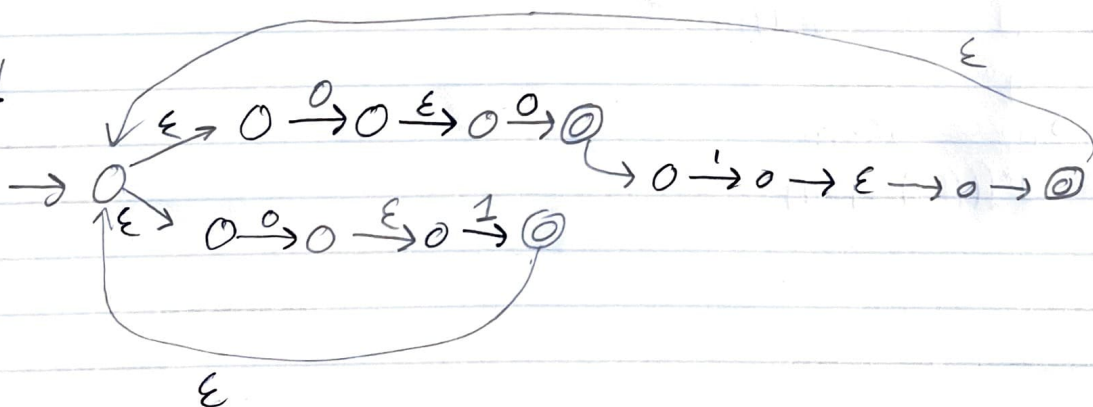 ε
ε 0 ε 0
1 ε
ε 0 ε 1
ε